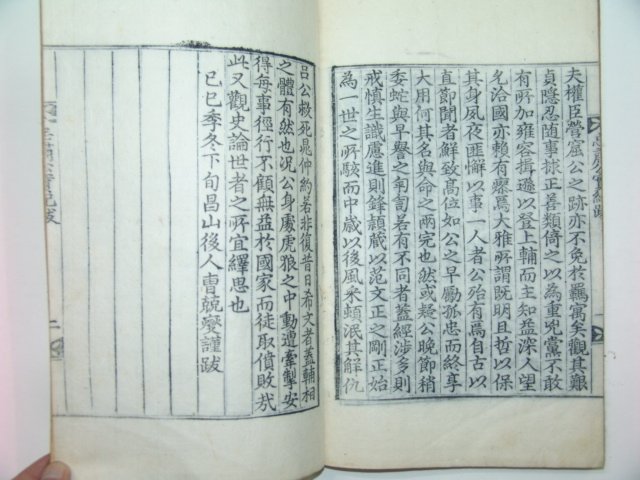 夫權臣營窟公之跡亦不免於羈寓矣觀其艱
貞隱忍隨事捄正善類倚之以為重兇黨不敢
有所加雍容揖遜以登上輔而主知益深人望
允洽國亦賴有瘳焉大雅所謂既明且哲以保
其身夙夜匪懈以事一人者公殆有焉自古以
直節聞者鮮致高位如公之早勵孤忠而終享
大用何其名與命之兩完也然或疑公晚節稍
委蛇與早譽之若有不同者蓋經涉多則
戒慎生識慮進則鋒穎藏以范文正之剛正始
為一世之所駭而中歲以後風釆頓泯其解仇
呂公救死晁仲約若非復昔日希文者蓋輔相
之體有然也況公身處虎狼之中動遭牽掣安
得每事徑行不顧無益於國家而徒取僨敗㢤
此又觀史論世者之所宜繹思也
己巳季冬下旬昌山後人曺兢燮謹跋